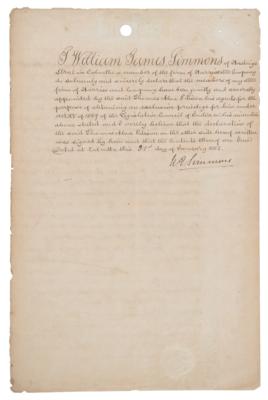 I William James Simmons of Hastings
Street in Calcutta a member of the firm of Harrison and Company
do solemnly and sincerely declare that the members of my said
firm of Harrison and Company have been jointly and severally
appointed by the said Thomas Alva Edison his agents for the
purpose of obtaining an exclusive privilege for him under
Act XV of 1859 of the Legislative Council of India in his invention
above stated and I verily believe that the declaration of
the said Thomas Alva Edison on the other side hereof written
was signed by him and that the contents thereof are true
Dated at Calcutta this day of January
W. J. Simmons